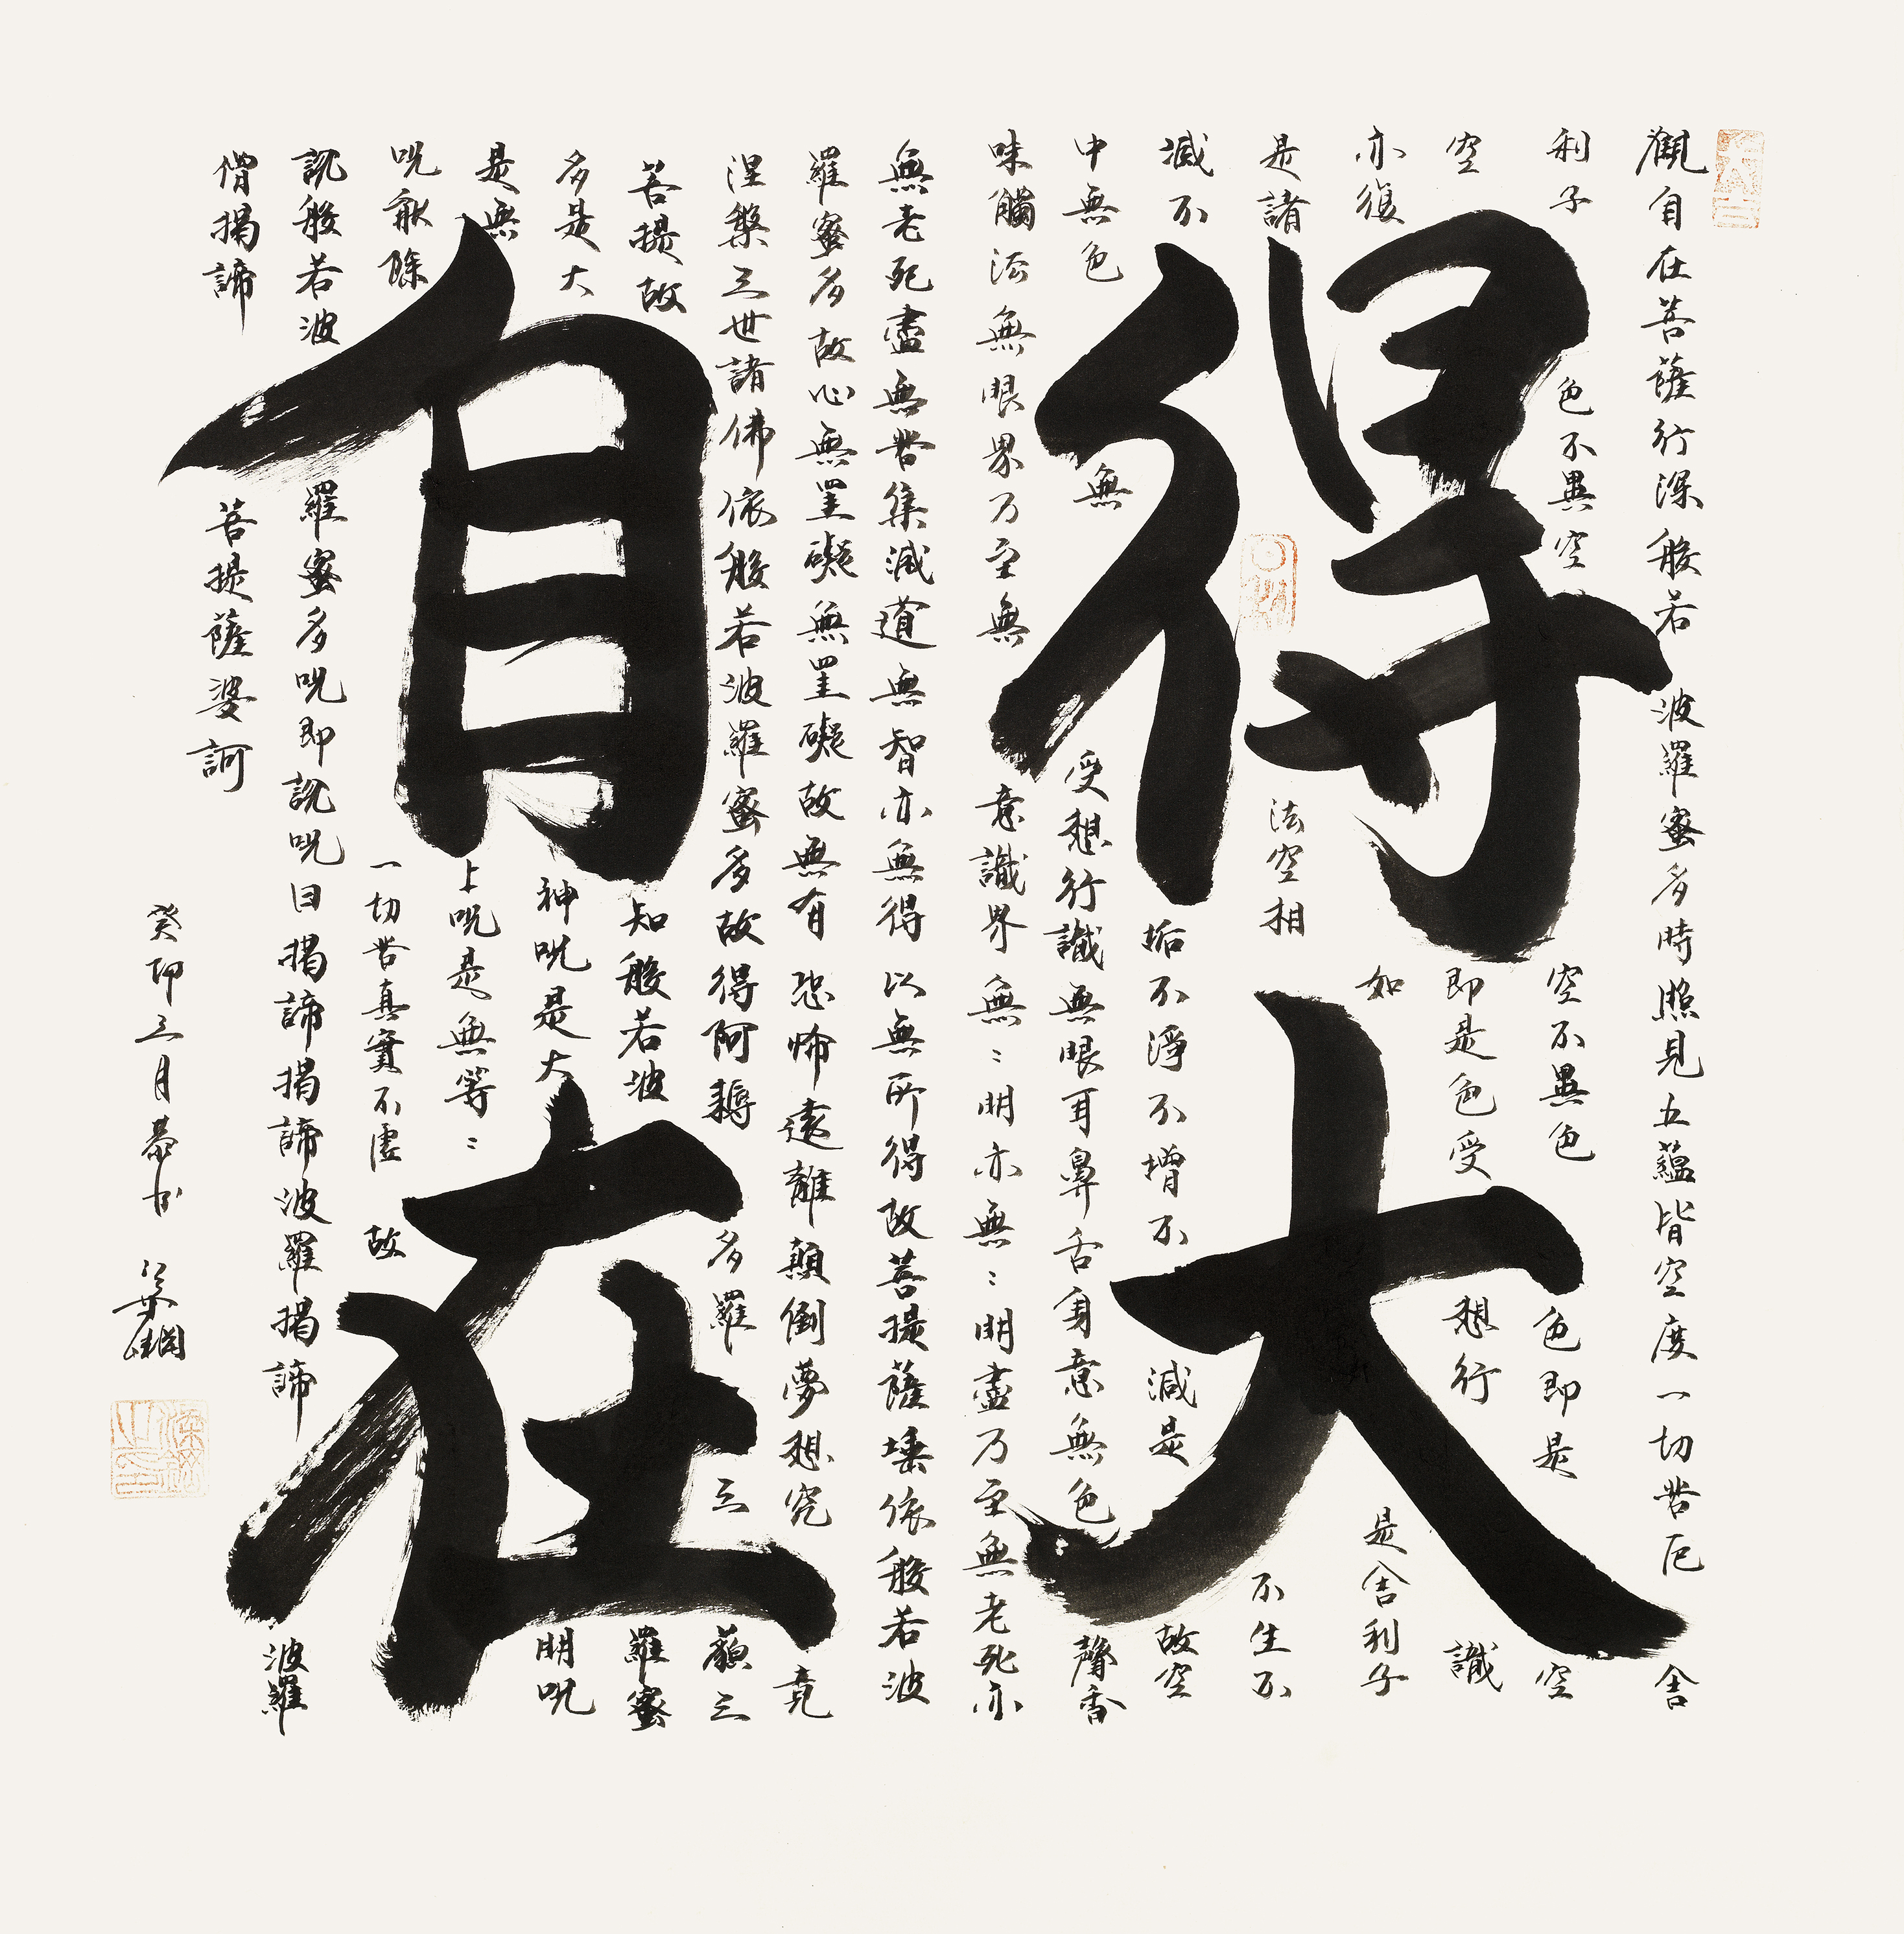 得大自在
觀自在菩薩行深般若波羅蜜多時照見五蘊皆空度一切苦厄舍
利子色不異空空不異色色即是空
空即是色受想行識
亦復如是舍利子
是諸法空相不生不
滅不垢不淨不增不減是故空
中無色無受想行識無眼耳鼻舌身意無色聲香
味觸法無眼界乃至無意識界無無明亦無無明盡乃至無老死亦
無老死盡無苦集滅道無智亦無得以無所得故菩提薩埵依般若波
羅蜜多故心無罣礙無罣礙故無有恐怖遠離顛倒夢想究竟
涅槃三世諸佛依般若波羅蜜多故得阿耨多羅三藐三
菩提故知般若波羅蜜
多是大神呪是大明呪
是無上呪是無等等
呪能除一切苦真實不虛故
說般若波羅蜜多呪即說呪曰揭諦揭諦波羅揭諦波羅
僧揭諦菩提薩婆訶
癸卯三月恭书